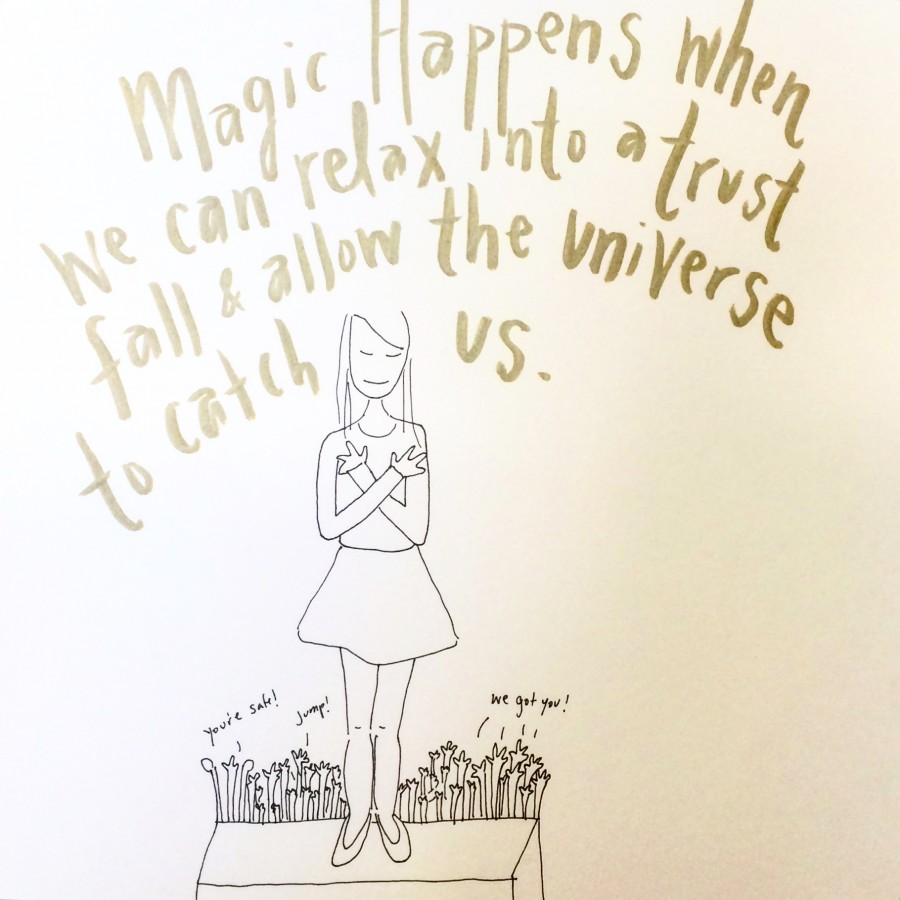 Magic Happens when
we can relax into a trust
fall & allow the universe
to catch us.
you're safe!
jump!
we got you!